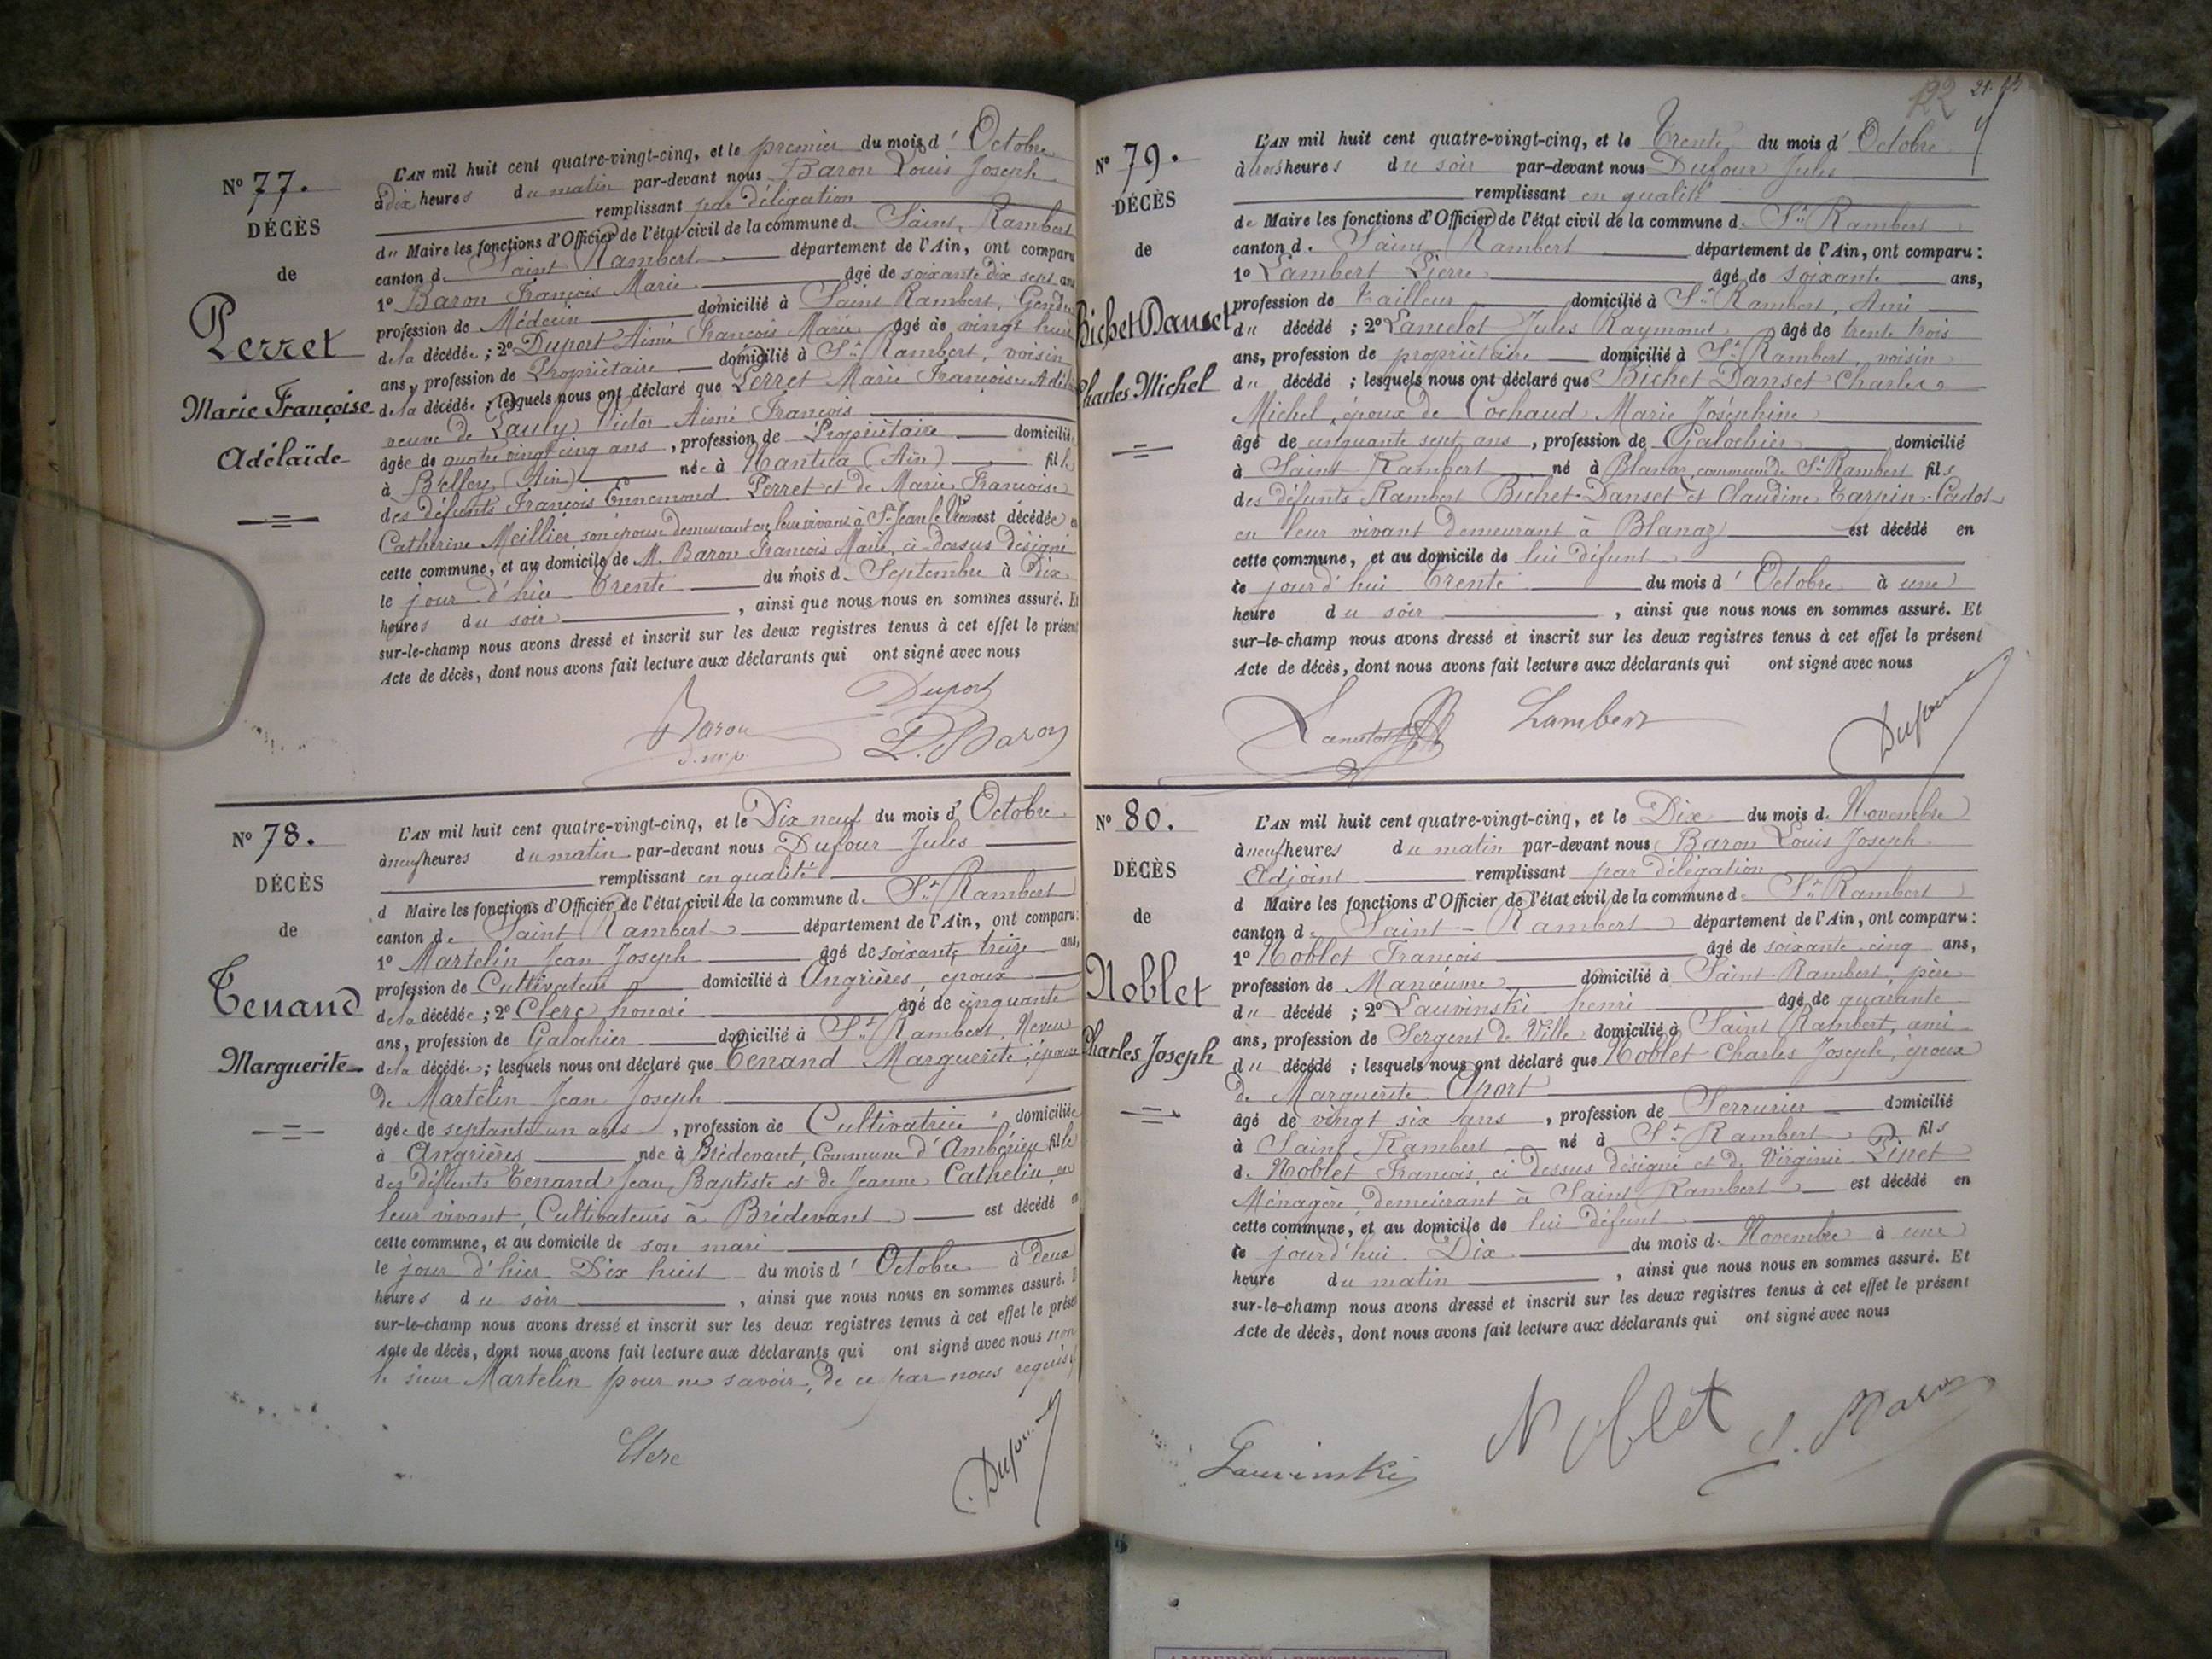 Nº 77.
DÉCÈS
de
Perret
Marie Françoise
Adélaïde
L'AN mil huit cent quatre-vingt-cinq, et le premier du mois d' Octobre
à dix heures du matin par-devant nous Baron Louis Joseph
remplissant par délégation
du Maire les fonctions d'Officier de l'état civil de la commune de Saint Rambert
canton de Saint Rambert département de l'Ain, ont comparu
1º Baron François Marie âgé de soixante dix sept ans
profession de Médecin domicilié à Saint Rambert, Gendre
de la décédée ; 2º Duport Aimé François Marie âgé de vingt huit
ans, profession de Propriétaire domicilié à St Rambert, voisin
de la décédée ; lesquels nous ont déclaré que Perret Marie Françoise Adél
veuve de Lauly Victor Aimé François
âgée de quatre vingt cinq ans, profession de Propriétaire domiciliée
à Belley (Ain) née à Nantua (Ain) fille
des défunts François Ennemond Perret et de Marie Françoise
Catherine Meillier son épouse demeurant en leur vivant à St Jean le Vieux est décédée en
cette commune, et au domicile de M. Baron François Marie, ci-dessus désigné
le jour d'hier trente du mois de Septembre à dix
heures du soir, ainsi que nous nous en sommes assuré. Et
sur-le-champ nous avons dressé et inscrit sur les deux registres tenus à cet effet le présent
Acte de décès, dont nous avons fait lecture aux déclarants qui ont signé avec nous
Duport
Baron
d. m. p.
L. Baron
Nº 78.
DÉCÈS
de
Tenand
Marguerite
L'AN mil huit cent quatre-vingt-cinq, et le Dix neuf du mois d' Octobre
à neuf heures du matin par-devant nous Dufour Jules
remplissant en qualité
d Maire les fonctions d'Officier de l'état civil de la commune de St Rambert
canton de Saint Rambert département de l'Ain, ont comparu:
1º Martelin Jean Joseph âgé de soixante treize ans,
profession de Cultivateur domicilié à Angrières, époux
de la décédée ; 2º Clerc honoré âgé de cinquante
ans, profession de Galochier domicilié à St Rambert, Neveu
de la décédée ; lesquels nous ont déclaré que Tenand Marguerite, épouse
de Martelin Jean Joseph
âgée de septante un ans, profession de Cultivatrice domiciliée
à Angrières née à Brédevant, Commune d'Ambérieu fille
des défunts Tenand Jean Baptiste et de Jeanne Cathelin en
leur vivant, Cultivateurs à Brédevant est décédé en
cette commune, et au domicile de son mari
le jour d'hier Dix huit du mois d' Octobre à deux
heures du soir, ainsi que nous nous en sommes assuré. E
sur-le-champ nous avons dressé et inscrit sur les deux registres tenus à cet effet le présen
Acte de décès, dont nous avons fait lecture aux déclarants qui ont signé avec nous non
le sieur Martelin pour ne savoir, de ce par nous requis
Clerc
Dufour
Nº 79.
DÉCÈS
de
Bichet Danset
Charles Michel
L'AN mil huit cent quatre-vingt-cinq, et le Trente du mois d' Octobre
à trois heures du soir par-devant nous Dufour Jules
remplissant en qualité
de Maire les fonctions d'Officier de l'état civil de la commune de St Rambert
canton de Saint Rambert département de l'Ain, ont comparu :
1º Lambert Pierre âgé de soixante ans,
profession de tailleur domicilié à St Rambert, Ami
du décédé ; 2º Lancelot Jules Raymond âgé de trente trois
ans, profession de propriétaire domicilié à St Rambert, voisin
du décédé ; lesquels nous ont déclaré que Bichet Danset Charles
Michel, époux de Cochaud Marie Joséphine
âgé de cinquante sept ans, profession de Galochier domicilié
à Saint Rambert né à Blanaz, commune de St Rambert fils
des défunts Rambert Bichet-Danset et Claudine Tarpin-Cadot
en leur vivant demeurant à Blanaz est décédé en
cette commune, et au domicile de lui défunt
ce jourd'hui trente du mois d' Octobre à une
heure du soir, ainsi que nous nous en sommes assuré. Et
sur-le-champ nous avons dressé et inscrit sur les deux registres tenus à cet effet le présent
Acte de décès, dont nous avons fait lecture aux déclarants qui ont signé avec nous
Lancelot Lambert Dufour
Nº 80.
DÉCÈS
de
Noblet
Charles Joseph
L'AN mil huit cent quatre-vingt-cinq, et le Dix du mois de Novembre
à neuf heures du matin par-devant nous Baron Louis Joseph
Adjoint remplissant par délégation
d Maire les fonctions d'Officier de l'état civil de la commune de St Rambert
canton de Saint-Rambert département de l'Ain, ont comparu :
1º Noblet François âgé de soixante cinq ans,
profession de Manœuvre domicilié à Saint Rambert, père
du décédé ; 2º Lauvinski henri âgé de quarante
ans, profession de Sergent de Ville domicilié à Saint Rambert, ami
du décédé ; lesquels nous ont déclaré que Noblet Charles Joseph, époux
de Marguerite Aport
âgé de vingt six ans, profession de Serrurier domicilié
à Saint Rambert né à St Rambert fils
de Noblet François, ci dessus désigné et de Virginie Pinet
Ménagère, demeurant à Saint Rambert est décédé en
cette commune, et au domicile de lui défunt
ce jourd'hui Dix du mois de Novembre à une
heure du matin, ainsi que nous nous en sommes assuré. Et
sur-le-champ nous avons dressé et inscrit sur les deux registres tenus à cet effet le présent
Acte de décès, dont nous avons fait lecture aux déclarants qui ont signé avec nous
Lauvinski Noblet L. Baron